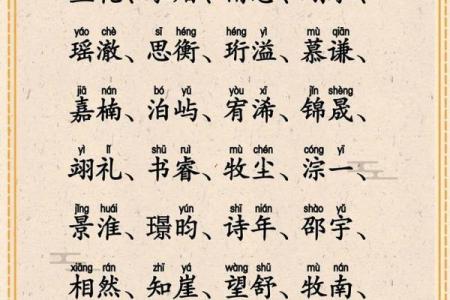 yáo chè sī héng héng yì mù qiān
瑶澈、思衡、珩溢、慕谦、
jiā nán bó yǔ yòu xī jǐn shèng
嘉楠、泊屿、宥浠、锦晟、
yì lǐ shū ruì mù chén cóng yī
翊礼、书睿、牧尘、淙一、
jǐng huái yún shī nián shào yǔ
景淮、璟昀、诗年、邵宇、
xiāng rán zhī yá wàng shū mù nán
相然、知崖、望舒、牧南、